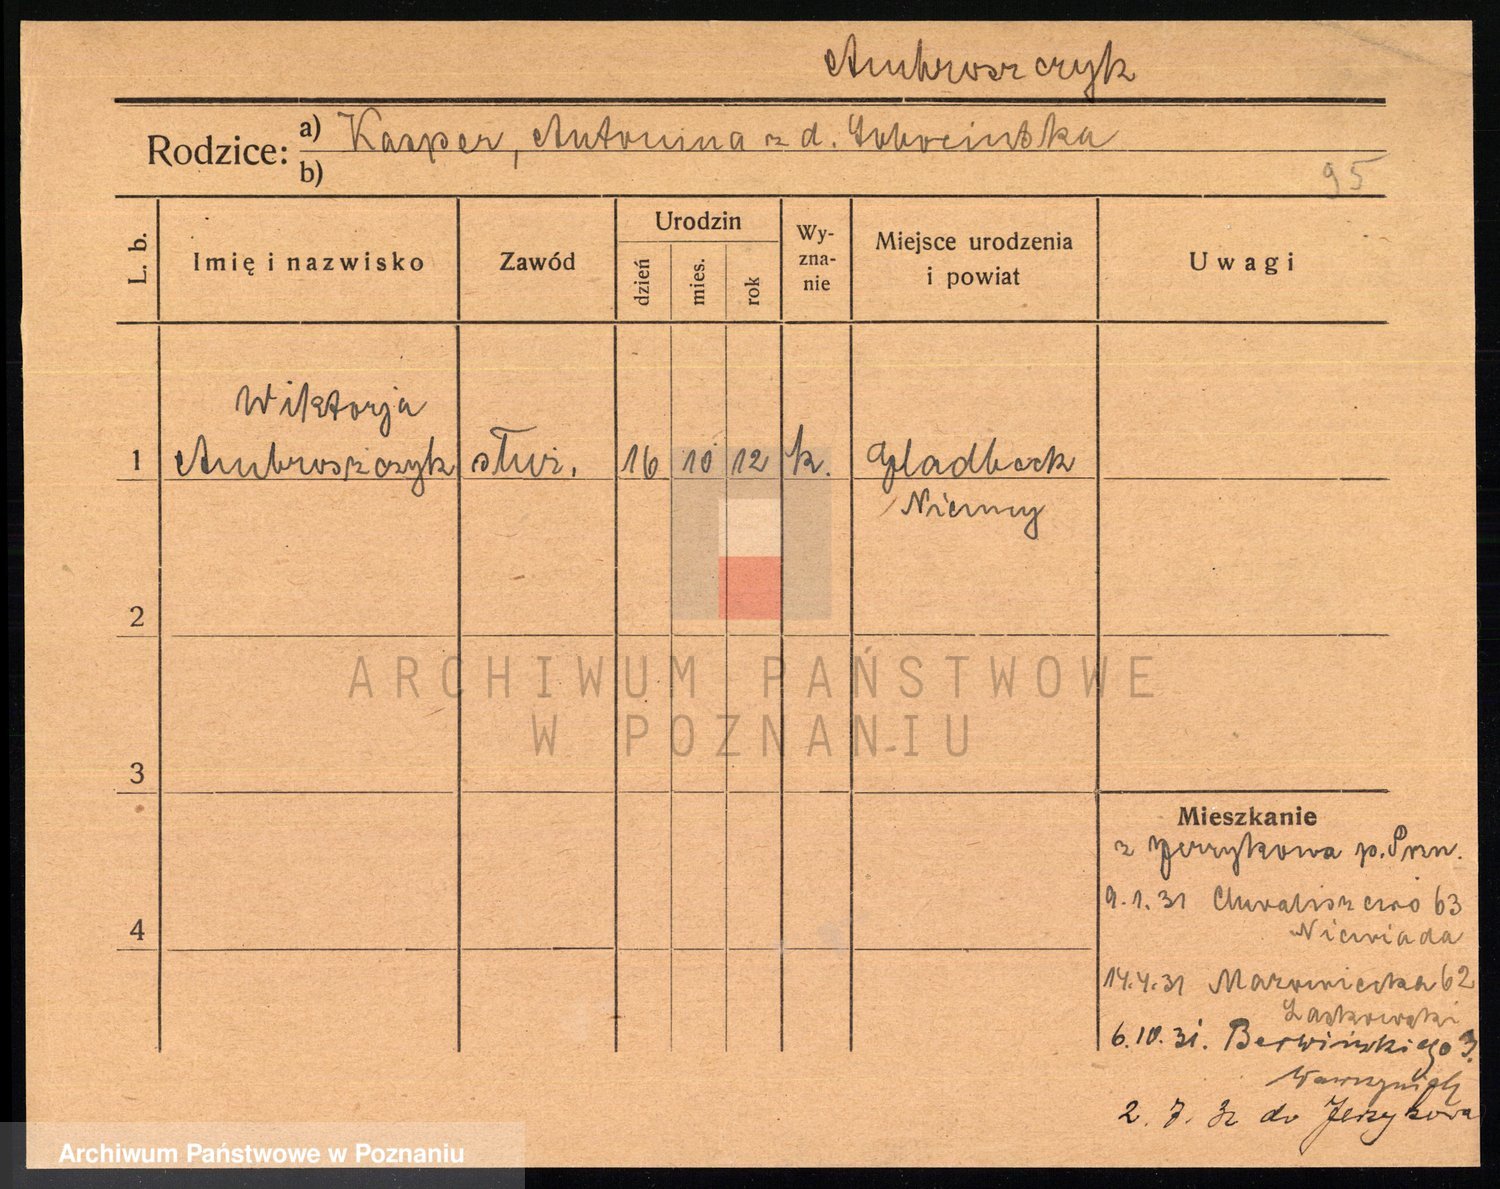 Ambroszczyk
Rodzice: a) Kasper, Antonina z d. Sobocińska
b)
95
L. b.
Imię i nazwisko
Zawód
Urodzin
dzień
mies.
rok
Wy-
zna-
nie
Miejsce urodzenia
i powiat
Uwagi
Wiktorja
1 Ambroszczyk służ. 16 10 12 k. Gladbeck
Niemcy
2
ARCHIWUM PAŃSTWOWE
W POZNANIU
3
Mieszkanie
z Jerzykowa p. Pozn.
9.1.31 Chwaliszewo 63
Niewiada
4
14.4.31 Mazowiecka 62
Laskowski
6.10.31. Berwińskiego 3.
2. 7. 32 do Jerzykowa
Archiwum Państwowe w Poznaniu